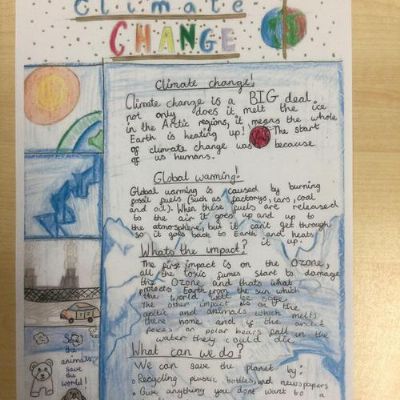 Climate
CHANGE
Climate change!
Climate change is a BIG deal
not only does it melt the ice
in the Arctic regions, it means the whole
Earth is heating up! The start
of climate change was because
of us humans.
Global warming!
Global warming is caused by burning
fossil fuels (such as factorys, cars, coal
and oil). When these fuels are released
to the air it goes up and up to
the atmosphere, but it cant get through
so it goes back to Earth and heats
it up.
Whats the impact?
The first impact is on the Ozone,
all the toxic fumes start to damage
the Ozone and thats what
protects Earth from the sun which
the world will be
The other impact is on the
arctic and animals which melts
there home and if the arctic
foxes or polar bears fall in the
water they could die.
What can we do?
We can save the planet by:
Recycling bottles and newspapers
Give anything you dont want to a
animals
save
the
world!